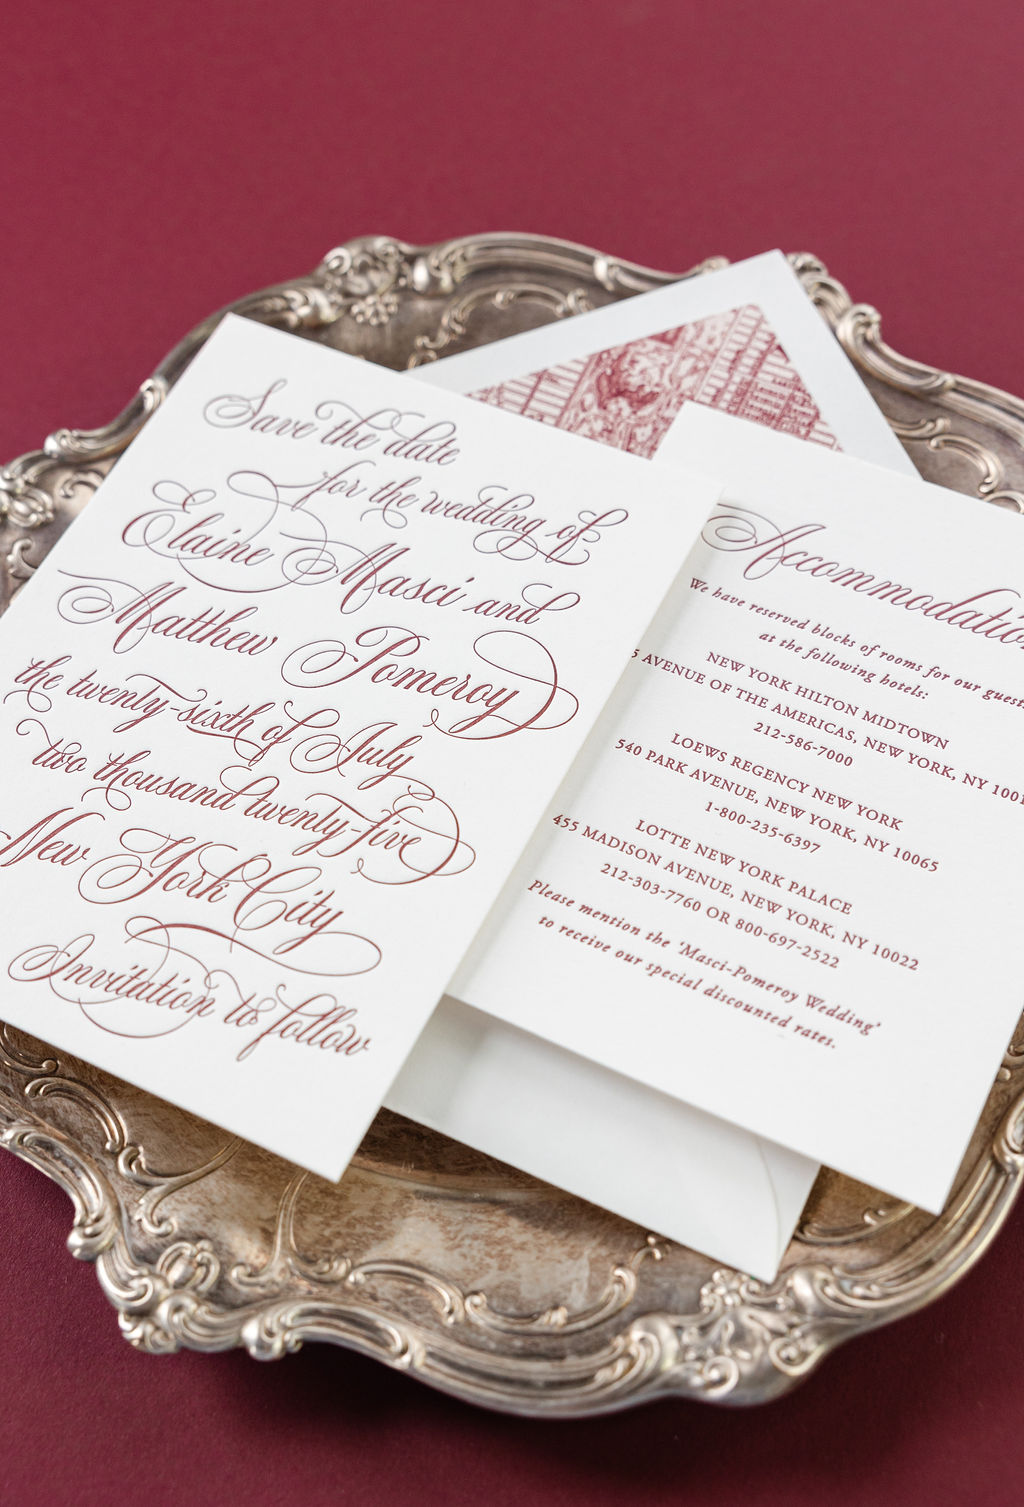 Save the date
for the wedding of
Elaine Masci and
Matthew Pomeroy
the twenty-sixth of July
two thousand twenty-five
New York City
Invitation to follow
Accommodatio
We have reserved blocks of rooms for our guests
at the following hotels:
NEW YORK HILTON MIDTOWN
5 AVENUE OF THE AMERICAS, NEW YORK, NY 1001
212-586-7000
LOEWS REGENCY NEW YORK
540 PARK AVENUE, NEW YORK, NY 10065
1-800-235-6397
LOTTE NEW YORK PALACE
455 MADISON AVENUE, NEW YORK, NY 10022
212-303-7760 OR 800-697-2522
Please mention the 'Masci-Pomeroy Wedding'
to receive our special discounted rates.